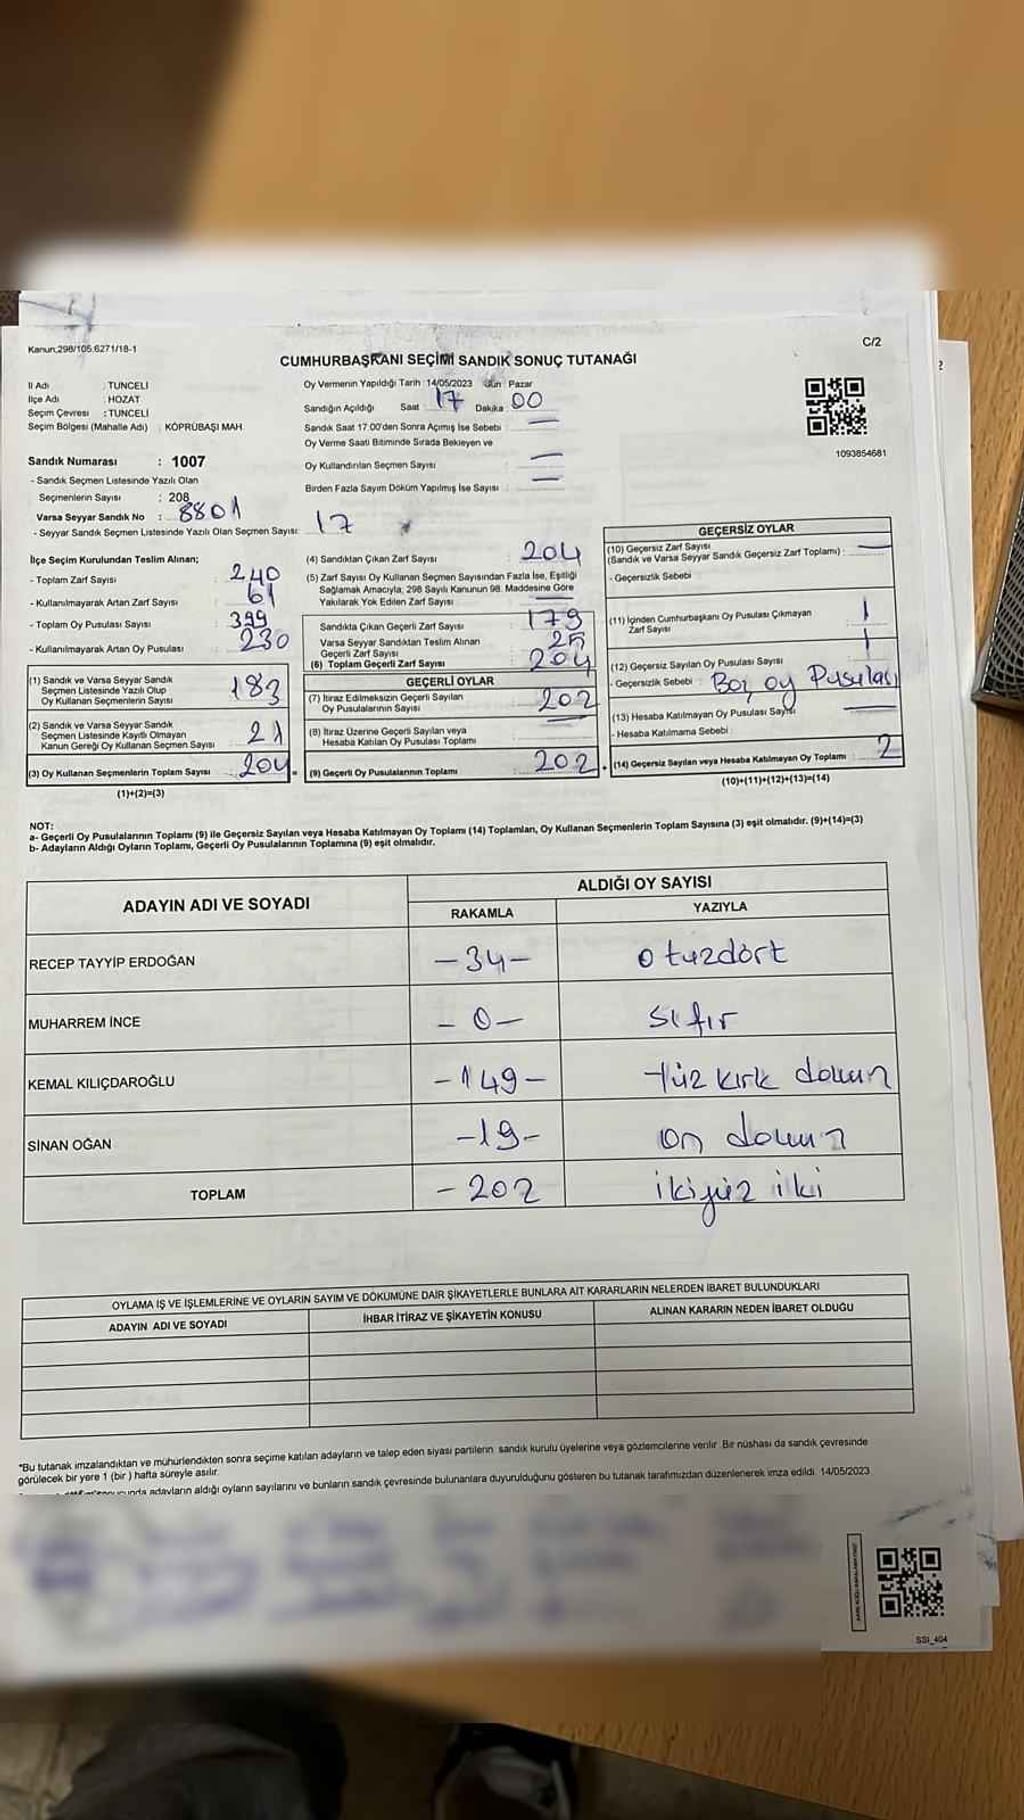 Kanun;298/105,6271/18-1
C/2
CUMHURBAŞKANI SEÇİMİ SANDIK SONUÇ TUTANAĞI
İl Adı : TUNCELİ
İlçe Adı : HOZAT
Seçim Çevresi : TUNCELİ
Seçim Bölgesi (Mahalle Adı) : KÖPRÜBAŞI MAH.
Oy Vermenin Yapıldığı Tarih : 14/05/2023 Gün : Pazar
Sandığın Açıldığı Saat 17 Dakika 00
Sandık Saat 17:00'den Sonra Açımış İse Sebebi : —
Oy Verme Saati Bitiminde Sırada Bekleyen ve
Oy Kullandırılan Seçmen Sayısı : —
Birden Fazla Sayım Döküm Yapılmış İse Sayısı : —
1093854681
Sandık Numarası : 1007
- Sandık Seçmen Listesinde Yazılı Olan
Seçmenlerin Sayısı : 208
Varsa Seyyar Sandık No : 8801
- Seyyar Sandık Seçmen Listesinde Yazılı Olan Seçmen Sayısı: 17
İlçe Seçim Kurulundan Teslim Alınan;
- Toplam Zarf Sayısı : 240
- Kullanılmayarak Artan Zarf Sayısı : 61
- Toplam Oy Pusulası Sayısı : 399
- Kullanılmayarak Artan Oy Pusulası : 230
(1) Sandık ve Varsa Seyyar Sandık
Seçmen Listesinde Yazılı Olup
Oy Kullanan Seçmenlerin Sayısı 183
(2) Sandık ve Varsa Seyyar Sandık
Seçmen Listesinde Kayıtlı Olmayan
Kanun Gereği Oy Kullanan Seçmen Sayısı 21
(3) Oy Kullanan Seçmenlerin Toplam Sayısı 204 =
(1)+(2)=(3)
(4) Sandıktan Çıkan Zarf Sayısı : 204
(5) Zarf Sayısı Oy Kullanan Seçmen Sayısından Fazla İse, Eşitliği
Sağlamak Amacıyla; 298 Sayılı Kanunun 98. Maddesine Göre
Yakılarak Yok Edilen Zarf Sayısı —
Sandıkta Çıkan Geçerli Zarf Sayısı : 179
Varsa Seyyar Sandıktan Teslim Alınan
Geçerli Zarf Sayısı : 25
(6) Toplam Geçerli Zarf Sayısı : 204
GEÇERLİ OYLAR
(7) İtiraz Edilmeksizin Geçerli Sayılan
Oy Pusulalarının Sayısı : 202
(8) İtiraz Üzerine Geçerli Sayılan veya
Hesaba Katılan Oy Pusulası Toplamı : —
(9) Geçerli Oy Pusulalarının Toplamı : 202 +
GEÇERSİZ OYLAR
(10) Geçersiz Zarf Sayısı
(Sandık ve Varsa Seyyar Sandık Geçersiz Zarf Toplamı) : —
- Geçersizlik Sebebi
(11) İçinden Cumhurbaşkanı Oy Pusulası Çıkmayan
Zarf Sayısı : 1
(12) Geçersiz Sayılan Oy Pusulası Sayısı : 1
- Geçersizlik Sebebi : Boş oy Pusulası
(13) Hesaba Katılmayan Oy Pusulası Sayısı —
- Hesaba Katılmama Sebebi :
(14) Geçersiz Sayılan veya Hesaba Katılmayan Oy Toplamı : 2
(10)+(11)+(12)+(13)=(14)
NOT:
a- Geçerli Oy Pusulalarının Toplamı (9) ile Geçersiz Sayılan veya Hesaba Katılmayan Oy Toplamı (14) Toplamları, Oy Kullanan Seçmenlerin Toplam Sayısına (3) eşit olmalıdır. (9)+(14)=(3)
b- Adayların Aldığı Oyların Toplamı, Geçerli Oy Pusulalarının Toplamına (9) eşit olmalıdır.
ADAYIN ADI VE SOYADI
ALDIĞI OY SAYISI
RAKAMLA YAZIYLA
RECEP TAYYİP ERDOĞAN -34- otuzdört
MUHARREM İNCE -0- sıfır
KEMAL KILIÇDAROĞLU -149- Yüz kırk dokuz
SİNAN OĞAN -19- on dokuz
TOPLAM -202 ikiyüz iki
OYLAMA İŞ VE İŞLEMLERİNE VE OYLARIN SAYIM VE DÖKÜMÜNE DAİR ŞİKAYETLERLE BUNLARA AİT KARARLARIN NELERDEN İBARET BULUNDUKLARI
ADAYIN ADI VE SOYADI İHBAR İTİRAZ VE ŞİKAYETİN KONUSU ALINAN KARARIN NEDEN İBARET OLDUĞU
*Bu tutanak imzalandıktan ve mühürlendikten sonra seçime katılan adayların ve talep eden siyasi partilerin sandık kurulu üyelerine veya gözlemcilerine verilir. Bir nüshası da sandık çevresinde
görülecek bir yere 1 (bir) hafta süreyle asılır.
adayların aldığı oyların sayılarını ve bunların sandık çevresinde bulunanlara duyurulduğunu gösteren bu tutanak tarafımızdan düzenlenerek imza edildi. 14/05/2023
SSI_404